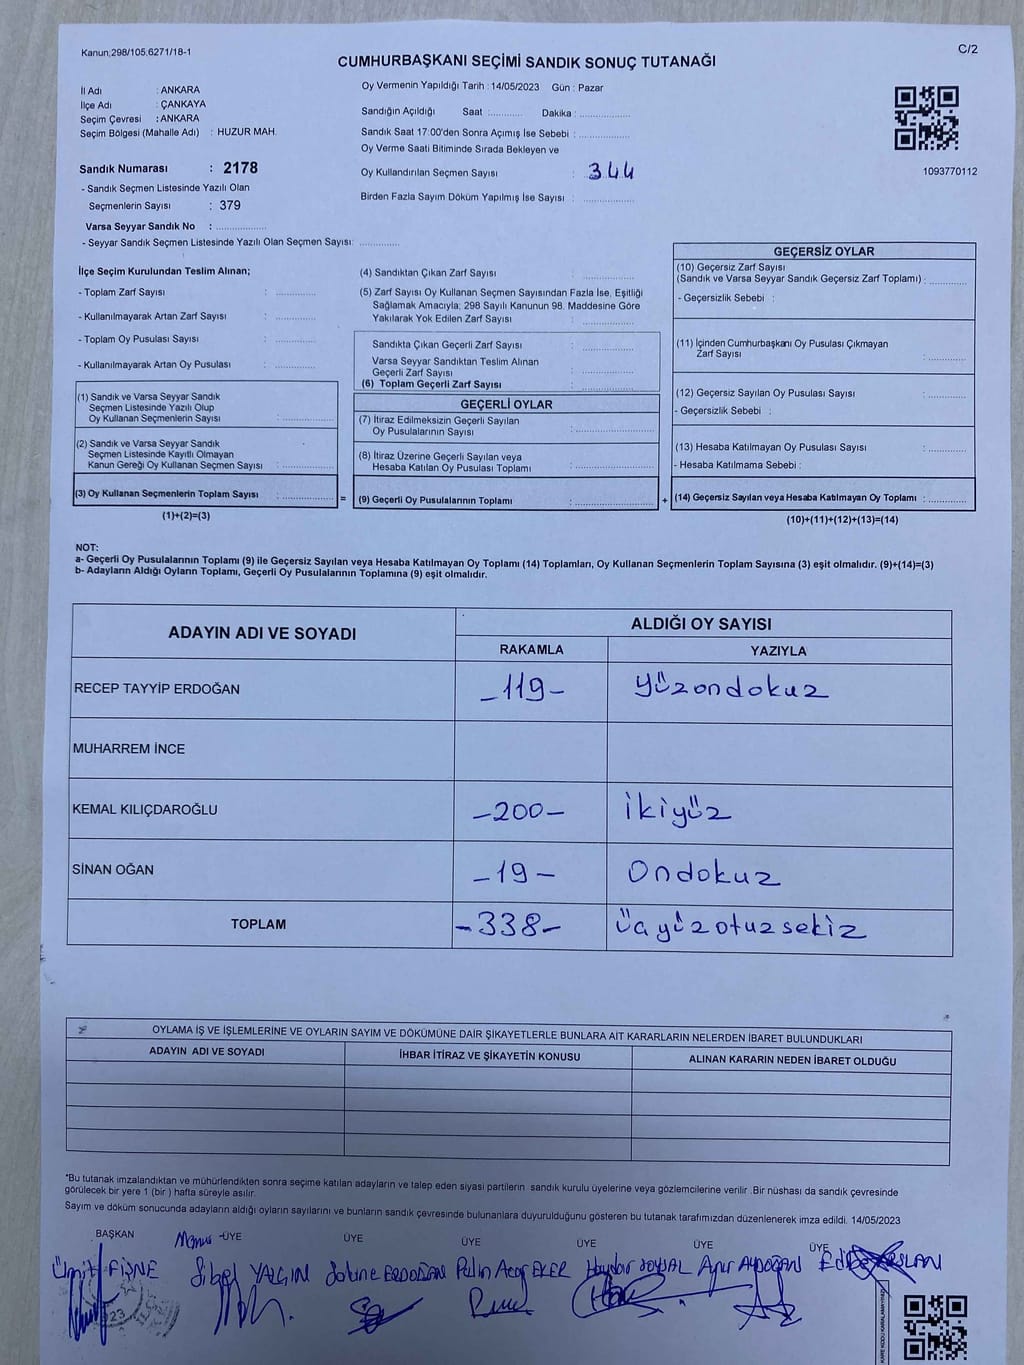 Kanun;298/105,6271/18-1
C/2
CUMHURBAŞKANI SEÇİMİ SANDIK SONUÇ TUTANAĞI
İl Adı : ANKARA
İlçe Adı : ÇANKAYA
Seçim Çevresi : ANKARA
Seçim Bölgesi (Mahalle Adı) : HUZUR MAH.
Oy Vermenin Yapıldığı Tarih : 14/05/2023 Gün : Pazar
Sandığın Açıldığı Saat ........... Dakika : ................
Sandık Saat 17:00'den Sonra Açımış İse Sebebi : ................
Oy Verme Saati Bitiminde Sırada Bekleyen ve
Oy Kullandırılan Seçmen Sayısı : 344
Birden Fazla Sayım Döküm Yapılmış İse Sayısı : ................
1093770112
Sandık Numarası : 2178
- Sandık Seçmen Listesinde Yazılı Olan
Seçmenlerin Sayısı : 379
Varsa Seyyar Sandık No : ................
- Seyyar Sandık Seçmen Listesinde Yazılı Olan Seçmen Sayısı: ............
İlçe Seçim Kurulundan Teslim Alınan;
- Toplam Zarf Sayısı : ............
- Kullanılmayarak Artan Zarf Sayısı : ............
- Toplam Oy Pusulası Sayısı : ............
- Kullanılmayarak Artan Oy Pusulası : ............
(1) Sandık ve Varsa Seyyar Sandık
Seçmen Listesinde Yazılı Olup
Oy Kullanan Seçmenlerin Sayısı : ................
(2) Sandık ve Varsa Seyyar Sandık
Seçmen Listesinde Kayıtlı Olmayan
Kanun Gereği Oy Kullanan Seçmen Sayısı : ................
(3) Oy Kullanan Seçmenlerin Toplam Sayısı : ................ =
(1)+(2)=(3)
(4) Sandıktan Çıkan Zarf Sayısı : ................
(5) Zarf Sayısı Oy Kullanan Seçmen Sayısından Fazla İse, Eşitliği
Sağlamak Amacıyla; 298 Sayılı Kanunun 98. Maddesine Göre
Yakılarak Yok Edilen Zarf Sayısı : ................
Sandıkta Çıkan Geçerli Zarf Sayısı : ................
Varsa Seyyar Sandıktan Teslim Alınan
Geçerli Zarf Sayısı : ................
(6) Toplam Geçerli Zarf Sayısı : ................
GEÇERLİ OYLAR
(7) İtiraz Edilmeksizin Geçerli Sayılan
Oy Pusulalarının Sayısı : ................
(8) İtiraz Üzerine Geçerli Sayılan veya
Hesaba Katılan Oy Pusulası Toplamı : ................
(9) Geçerli Oy Pusulalarının Toplamı : ................ +
GEÇERSİZ OYLAR
(10) Geçersiz Zarf Sayısı
(Sandık ve Varsa Seyyar Sandık Geçersiz Zarf Toplamı) : ............
- Geçersizlik Sebebi :
(11) İçinden Cumhurbaşkanı Oy Pusulası Çıkmayan
Zarf Sayısı : ............
(12) Geçersiz Sayılan Oy Pusulası Sayısı : ............
- Geçersizlik Sebebi :
(13) Hesaba Katılmayan Oy Pusulası Sayısı : ............
- Hesaba Katılmama Sebebi :
(14) Geçersiz Sayılan veya Hesaba Katılmayan Oy Toplamı : ............
(10)+(11)+(12)+(13)=(14)
NOT:
a- Geçerli Oy Pusulalarının Toplamı (9) ile Geçersiz Sayılan veya Hesaba Katılmayan Oy Toplamı (14) Toplamları, Oy Kullanan Seçmenlerin Toplam Sayısına (3) eşit olmalıdır. (9)+(14)=(3)
b- Adayların Aldığı Oyların Toplamı, Geçerli Oy Pusulalarının Toplamına (9) eşit olmalıdır.
ADAYIN ADI VE SOYADI
ALDIĞI OY SAYISI
RAKAMLA YAZIYLA
RECEP TAYYİP ERDOĞAN -119- yüzondokuz
MUHARREM İNCE
KEMAL KILIÇDAROĞLU -200- ikiyüz
SİNAN OĞAN -19- Ondokuz
TOPLAM -338- üçyüzotuzsekiz
OYLAMA İŞ VE İŞLEMLERİNE VE OYLARIN SAYIM VE DÖKÜMÜNE DAİR ŞİKAYETLERLE BUNLARA AİT KARARLARIN NELERDEN İBARET BULUNDUKLARI
ADAYIN ADI VE SOYADI İHBAR İTİRAZ VE ŞİKAYETİN KONUSU ALINAN KARARIN NEDEN İBARET OLDUĞU
*Bu tutanak imzalandıktan ve mühürlendikten sonra seçime katılan adayların ve talep eden siyasi partilerin sandık kurulu üyelerine veya gözlemcilerine verilir .Bir nüshası da sandık çevresinde
görülecek bir yere 1 (bir ) hafta süreyle asılır.
Sayım ve döküm sonucunda adayların aldığı oyların sayılarını ve bunların sandık çevresinde bulunanlara duyurulduğunu gösteren bu tutanak tarafımızdan düzenlenerek imza edildi. 14/05/2023
BAŞKAN Memur -ÜYE ÜYE ÜYE ÜYE ÜYE ÜYE
Ümit FİŞNE Sibel YALGIN Sabine ERDOĞAN Pelin Acar EKER Haydar SOYSAL Aynur AYDOĞAN